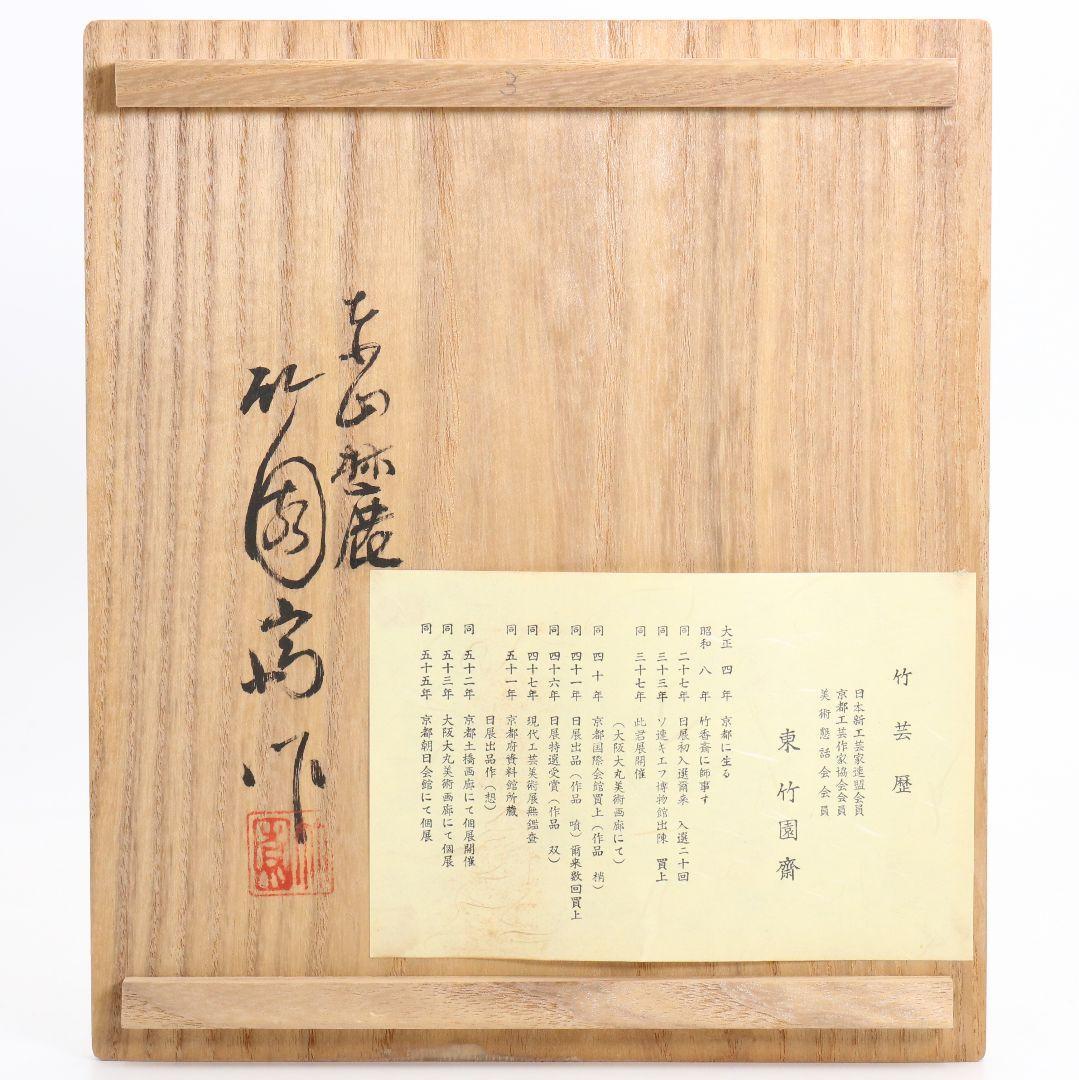 3
竹芸歴
日本新工芸家連盟会員
京都工芸作家協会会員
美術懇話会会員
東竹園齋
大正 四 年 京都に生る
昭和 八 年 竹香斎に師事す
同 二十七年 日展初入選爾来 入選二十回
同 三十三年 ソ連キエフ博物館出陳 買上
同 三十七年 此君展開催
(大阪大丸美術画廊にて)
同 四 十 年 京都国際会館買上(作品 梢)
同 四十一年 日展出品(作品 噴)爾来数回買上
同 四十六年 日展特選受賞(作品 双)
同 四十七年 現代工芸美術展無鑑査
同 五十一年 京都府資料館所蔵
日展出品作(想)
同 五十二年 京都土橋画廊にて個展開催
同 五十三年 大阪大丸美術画廊にて個展
同 五十五年 京都朝日会館にて個展
東山麓
竹園斎作